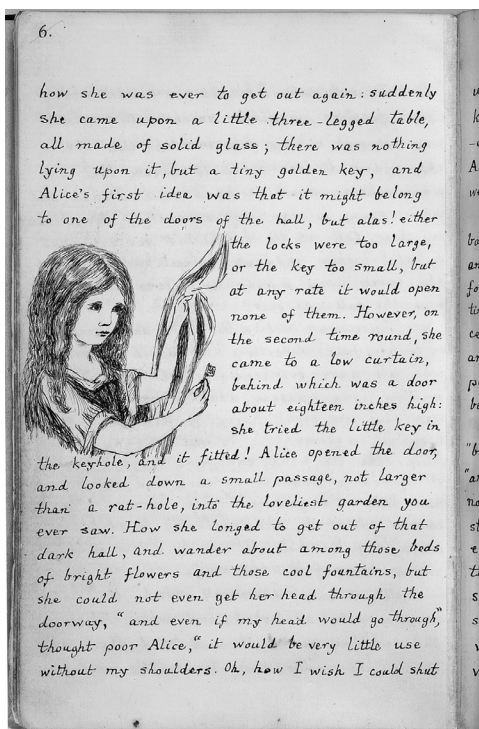 6.
how she was ever to get out again: suddenly
she came upon a little three-legged table,
all made of solid glass; there was nothing
lying upon it, but a tiny golden key, and
Alice's first idea was that it might belong
to one of the doors of the hall, but alas! either
the locks were too large,
or the key too small, but
at any rate it would open
none of them. However, on
the second time round, she
came to a low curtain,
behind which was a door
about eighteen inches high:
she tried the little key in
the keyhole, and it fitted! Alice opened the door,
and looked down a small passage, not larger
than a rat-hole, into the loveliest garden you
ever saw. How she longed to get out of that
dark hall, and wander about among those beds
of bright flowers and those cool fountains, but
she could not even get her head through the
doorway, "and even if my head would go through,"
thought poor Alice, "it would be very little use
without my shoulders. Oh, how I wish I could shut